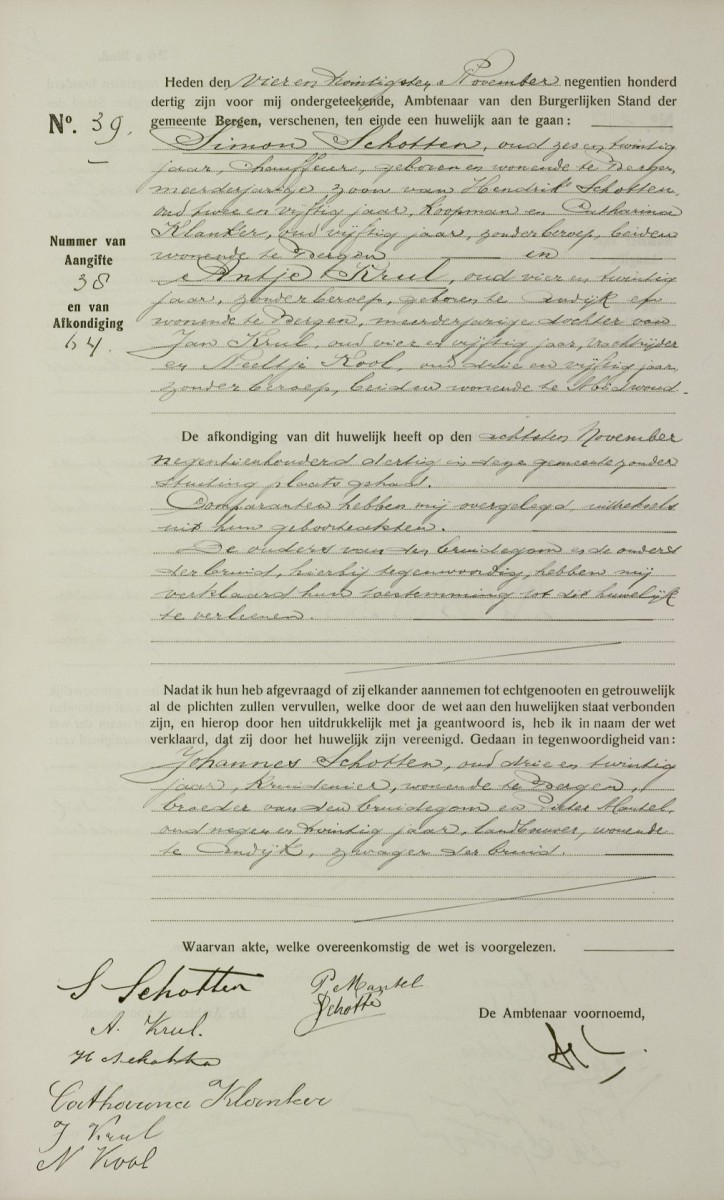 Heden den vier en twintigsten November negentien honderd
dertig zijn voor mij ondergeteekende, Ambtenaar van den Burgerlijken Stand der
gemeente Bergen, verschenen, ten einde een huwelijk aan te gaan:
No. 39.
Simon Schotten, oud zes en twintig
jaar, chauffeur, geboren en wonende te Bergen,
meerderjarige zoon van Hendrik Schotten,
oud twee en vijftig jaar, koopman en Catharina
Klanker, oud vijftig jaar, zonder beroep, beiden
wonende te Bergen en
Nummer van
Aangifte
38
en van
Afkondiging
64.
Antje Krul, oud vier en twintig
jaar, zonder beroep, geboren te Andijk en
wonende te Bergen, meerderjarige dochter van
Jan Krul, oud vier en vijftig jaar, vrachtrijder
en Neeltje Kool, oud drie en vijftig jaar,
zonder beroep, beiden wonende te Abbidwoud.
De afkondiging van dit huwelijk heeft op den achtsten November
negentienhonderd dertig in deze gemeente zonder
stuiting plaats gehad.
Comparanten hebben mij overgelegd, uittreksels
uit hun geboorteakten.
De ouders van den bruidegom en de ouders
der bruid, hierbij tegenwoordig, hebben mij
verklaard hun toestemming tot dit huwelijk
te verleenen.
Nadat ik hun heb afgevraagd of zij elkander aannemen tot echtgenooten en getrouwelijk
al de plichten zullen vervullen, welke door de wet aan den huwelijken staat verbonden
zijn, en hierop door hen uitdrukkelijk met ja geantwoord is, heb ik in naam der wet
verklaard, dat zij door het huwelijk zijn vereenigd. Gedaan in tegenwoordigheid van:
Johannes Schotten, oud drie en twintig
jaar, kruidenier, wonende te Bergen,
broeder van den bruidegom en Pieter Mantel,
oud negen en twintig jaar, landbouwer, wonende
te Andijk, zwager der bruid.
Waarvan akte, welke overeenkomstig de wet is voorgelezen.
S Schotten
P. Mantel
J Schotte
De Ambtenaar voornoemd,
A. Krul.
H Schotten
Catharina Klanker
J Krul
N Kool